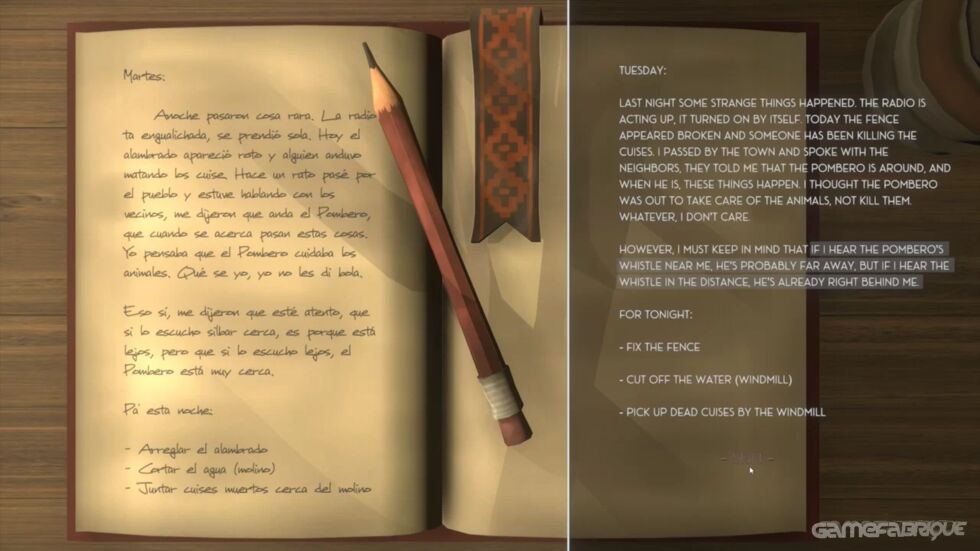 Martes:
Anoche pasaron cosa rara. La radio
ta engualichada, se prendió sola. Hoy el
alambrado apareció roto y alguien anduvo
matando los cuise. Hace un rato pasé por
el pueblo y estuve hablando con los
vecinos, me dijeron que anda el Pombero,
que cuando se acerca pasan estas cosas.
Yo pensaba que el Pombero cuidaba los
animales. Qué se yo, yo no les di bola.
Eso si, me dijeron que esté atento, que
si lo escucho silbar cerca, es porque está
lejos, pero que si lo escucho lejos, el
Pombero está muy cerca.
Pá esta noche:
- Arreglar el alambrado
- Cortar el agua (molino)
- Juntar cuises muertos cerca del molino
TUESDAY:
LAST NIGHT SOME STRANGE THINGS HAPPENED. THE RADIO IS
ACTING UP, IT TURNED ON BY ITSELF. TODAY THE FENCE
APPEARED BROKEN AND SOMEONE HAS BEEN KILLING THE
CUISES. I PASSED BY THE TOWN AND SPOKE WITH THE
NEIGHBORS, THEY TOLD ME THAT THE POMBERO IS AROUND, AND
WHEN HE IS, THESE THINGS HAPPEN. I THOUGHT THE POMBERO
WAS OUT TO TAKE CARE OF THE ANIMALS, NOT KILL THEM.
WHATEVER, I DON'T CARE.
HOWEVER, I MUST KEEP IN MIND THAT IF I HEAR THE POMBERO'S
WHISTLE NEAR ME, HE'S PROBABLY FAR AWAY, BUT IF I HEAR THE
WHISTLE IN THE DISTANCE, HE'S ALREADY RIGHT BEHIND ME.
FOR TONIGHT:
- FIX THE FENCE
- CUT OFF THE WATER (WINDMILL)
- PICK UP DEAD CUISES BY THE WINDMILL
GAMEFABRIQUE